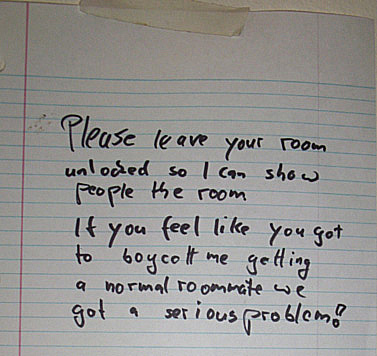 Please leave your room
unlocked so I can show
people the room
If you feel like you got
to boycott me getting
a normal roommate we
got a serious problem!